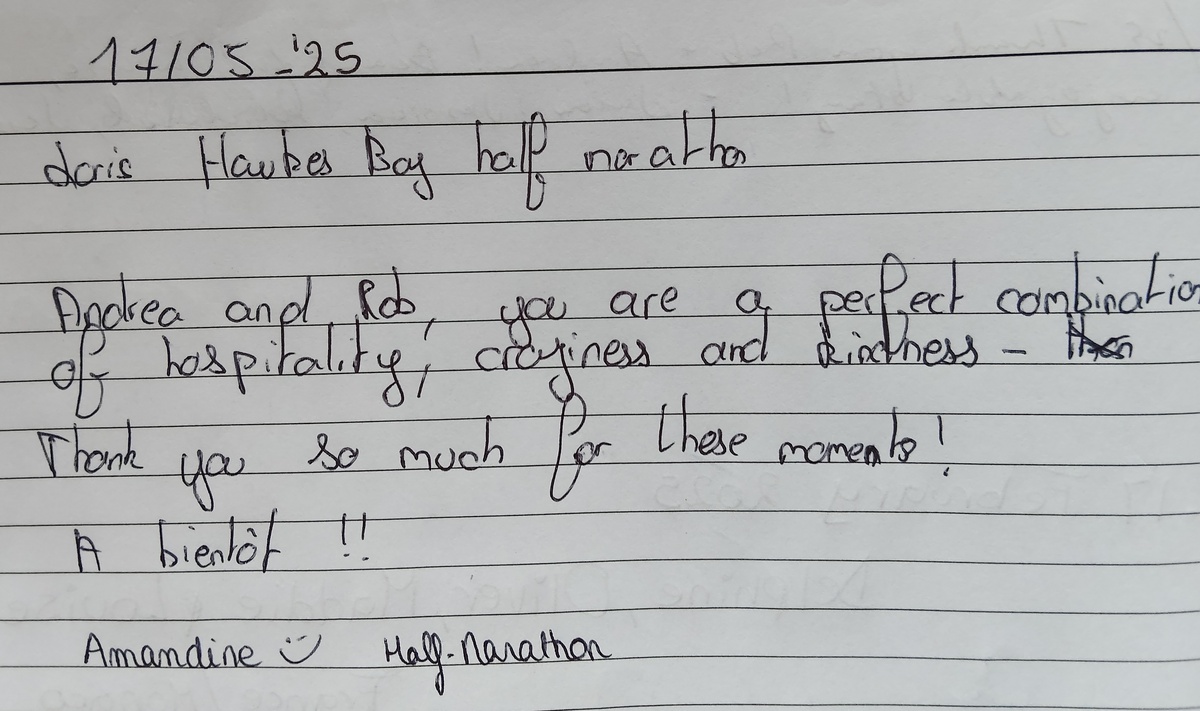 17/05 - '25
doris Hawkes Bay half marathon
Andrea and Rob, you are a perfect combination
of hospitality, crazyiness and kindness -
Thank you so much for these moments!
A bientôt !!
Amandine :) Half-Marathon